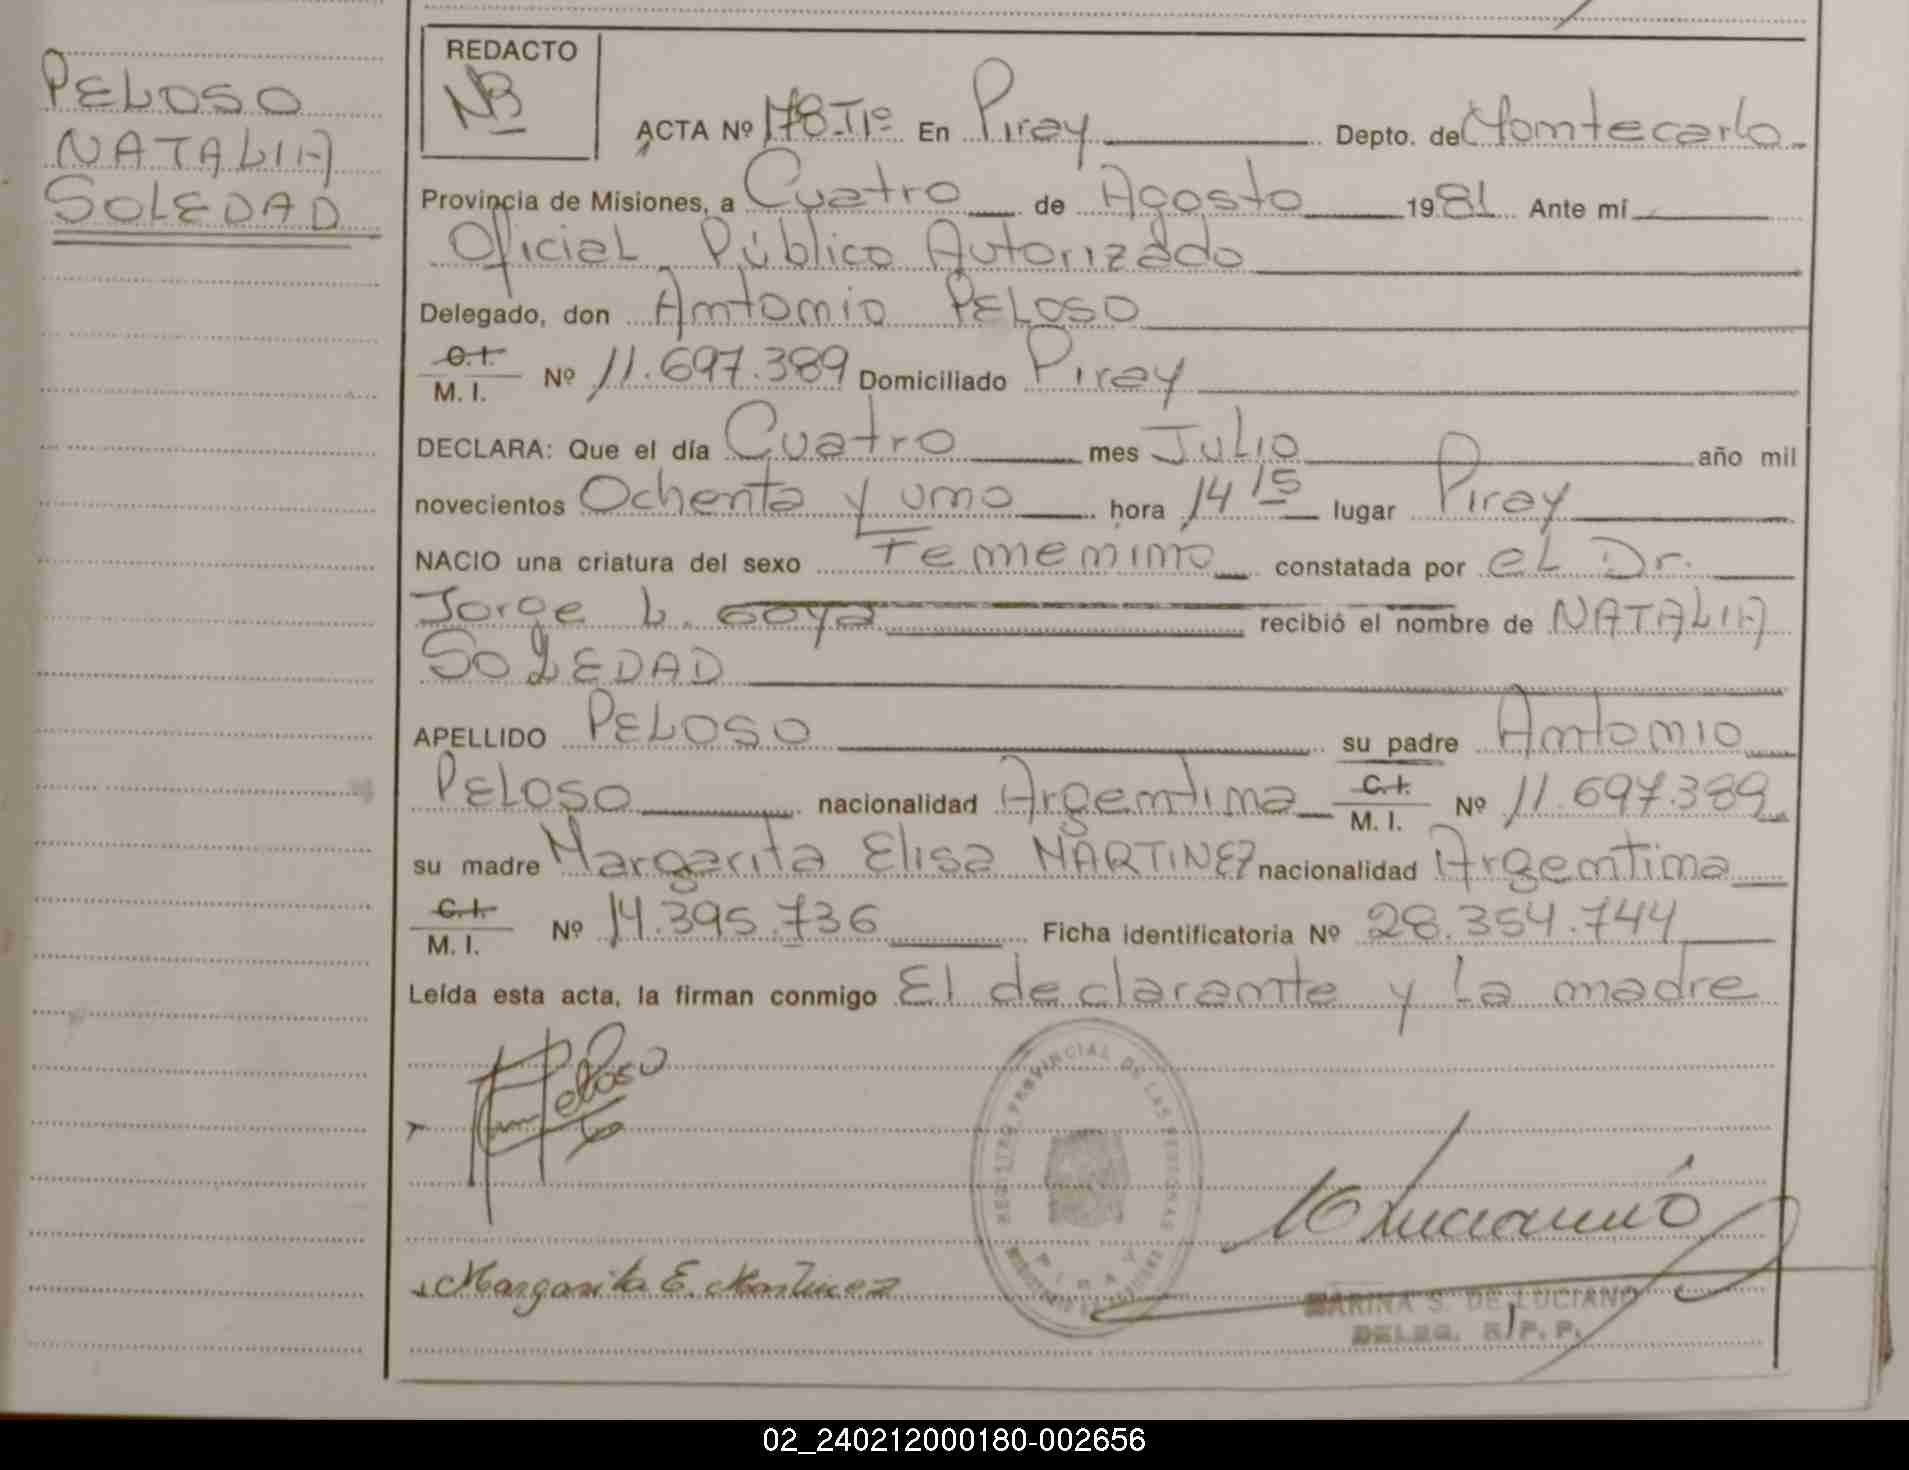 PELOSO
NATALIA
SOLEDAD
REDACTO
NB
ACTA Nº 178-Tº En Piray Depto. de Montecarlo
Provincia de Misiones, a Cuatro de Agosto 1981 Ante mí
Oficial Público Autorizado
Delegado, don Antonio PELOSO
C.I.
M. I. Nº 11.697.389 Domiciliado Piray
DECLARA: Que el día Cuatro mes Julio año mil
novecientos Ochenta y uno hora 14 15 lugar Piray
NACIO una criatura del sexo Femenino constatada por el Dr.
Jorge L. Goya recibió el nombre de NATALIA
SOLEDAD
APELLIDO PELOSO su padre Antonio
PELOSO nacionalidad Argentina C.I. M. I. Nº 11.697.389
su madre Margarita Elisa MARTINEZ nacionalidad Argentina
C.I.
M. I. Nº 14.395.736 Ficha identificatoria Nº 28.354.744
Leída esta acta, la firman conmigo El declarante y la madre
Peloso
REGISTRO PROVINCIAL DE LAS PERSONAS
PIRAY
Margarita E. Martinez
MARINA S. DE LUCIANO
DELEG. R.P.P.
02_240212000180-002656